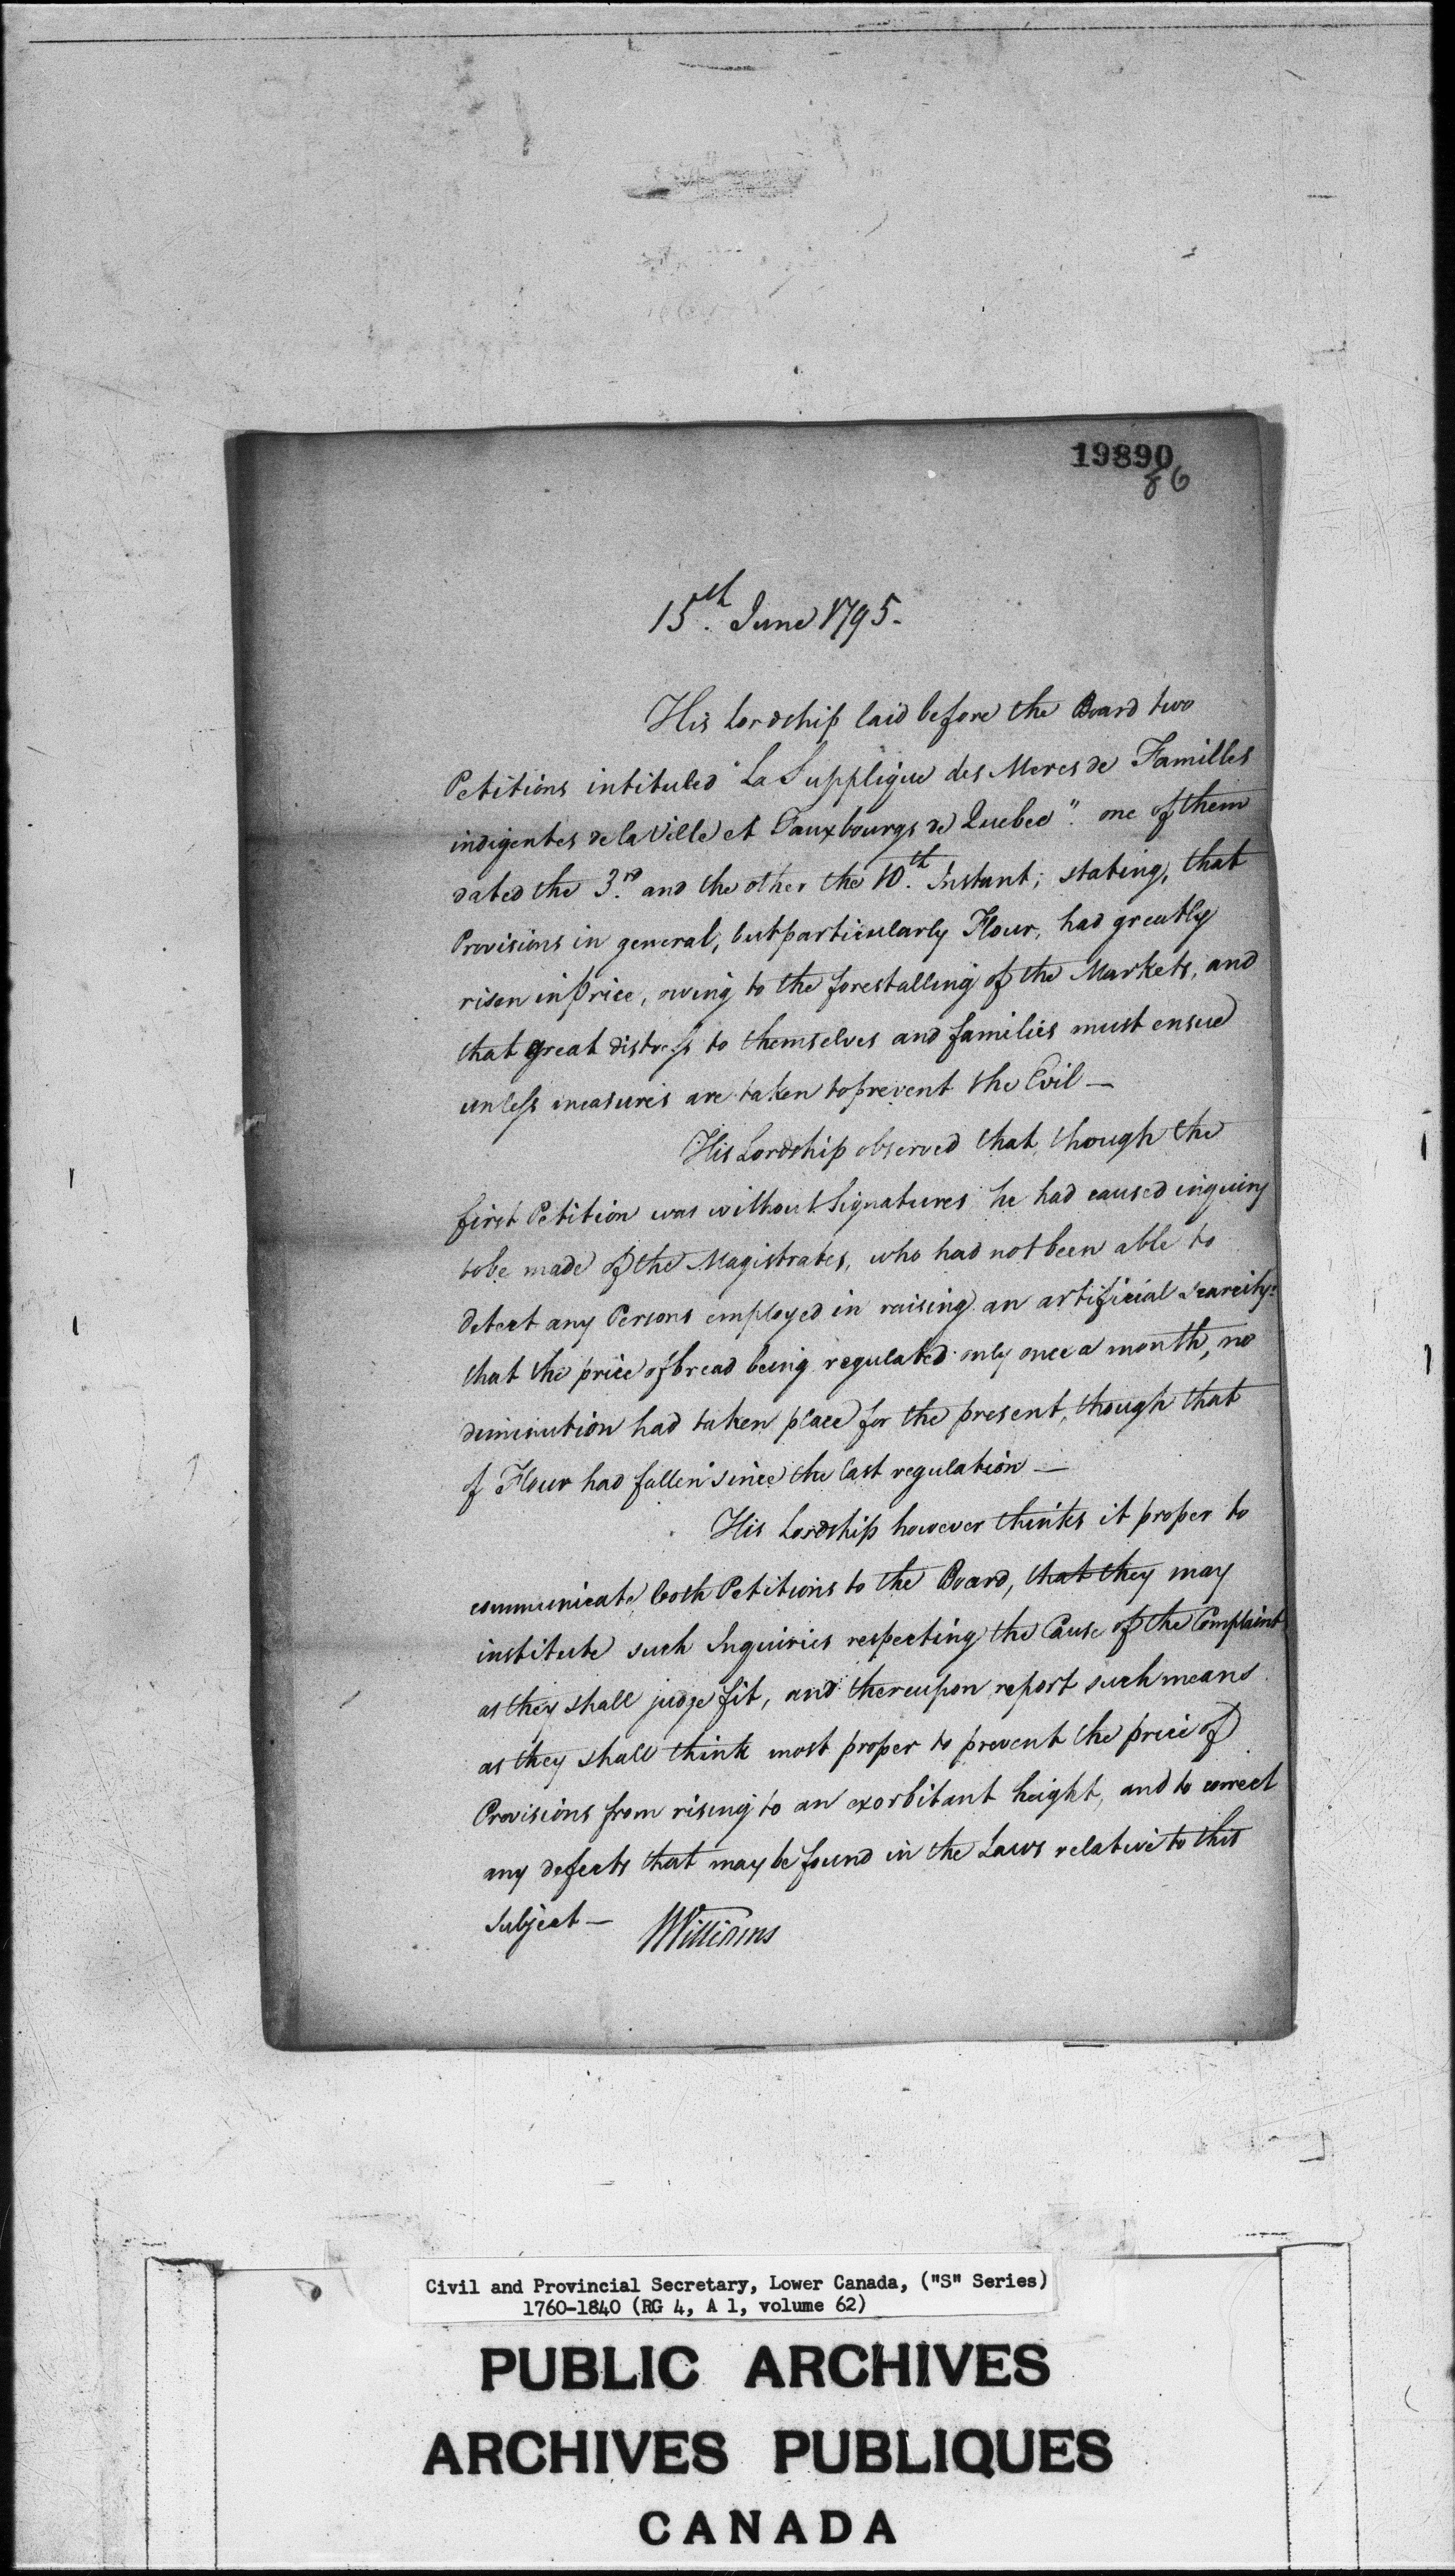 19890
86
15th. June 1795.
His Lordship laid before the Board two
Petitions intituled "La Supplique des Meres de Familles
indigentes de la Ville et Fauxbourgs de Quebec". one of them
dated the 3rd. and the other the 10th. Instant; stating, that
Provisions in general, but particularly Flour, had greatly
risen in Price, owing to the forestalling of the Markets, and
that great distress to themselves and families must ensue
unless measures are taken to prevent the Evil —
His Lordship observed that, though the
first Petition was without Signatures he had caused inquiry
to be made of the Magistrates, who had not been able to
detect any Persons employed in raising an artificial scarcity:
that the price of bread being regulated only once a month, no
diminution had taken place for the present, though that
of Flour had fallen since the last regulation —
His Lordship however thinks it proper to
communicate both Petitions to the Board, that they may
institute such Inquiries respecting the Cause of the Complaint
as they shall judge fit, and thereupon report such means
as they shall think most proper to prevent the price of
Provisions from rising to an exorbitant height, and to correct
any defects that may be found in the Laws relative to this
Subject —
JWilliams
Civil and Provincial Secretary, Lower Canada, ("S" Series)
1760-1840 (RG 4, A 1, volume 62)
PUBLIC ARCHIVES
ARCHIVES PUBLIQUES
CANADA